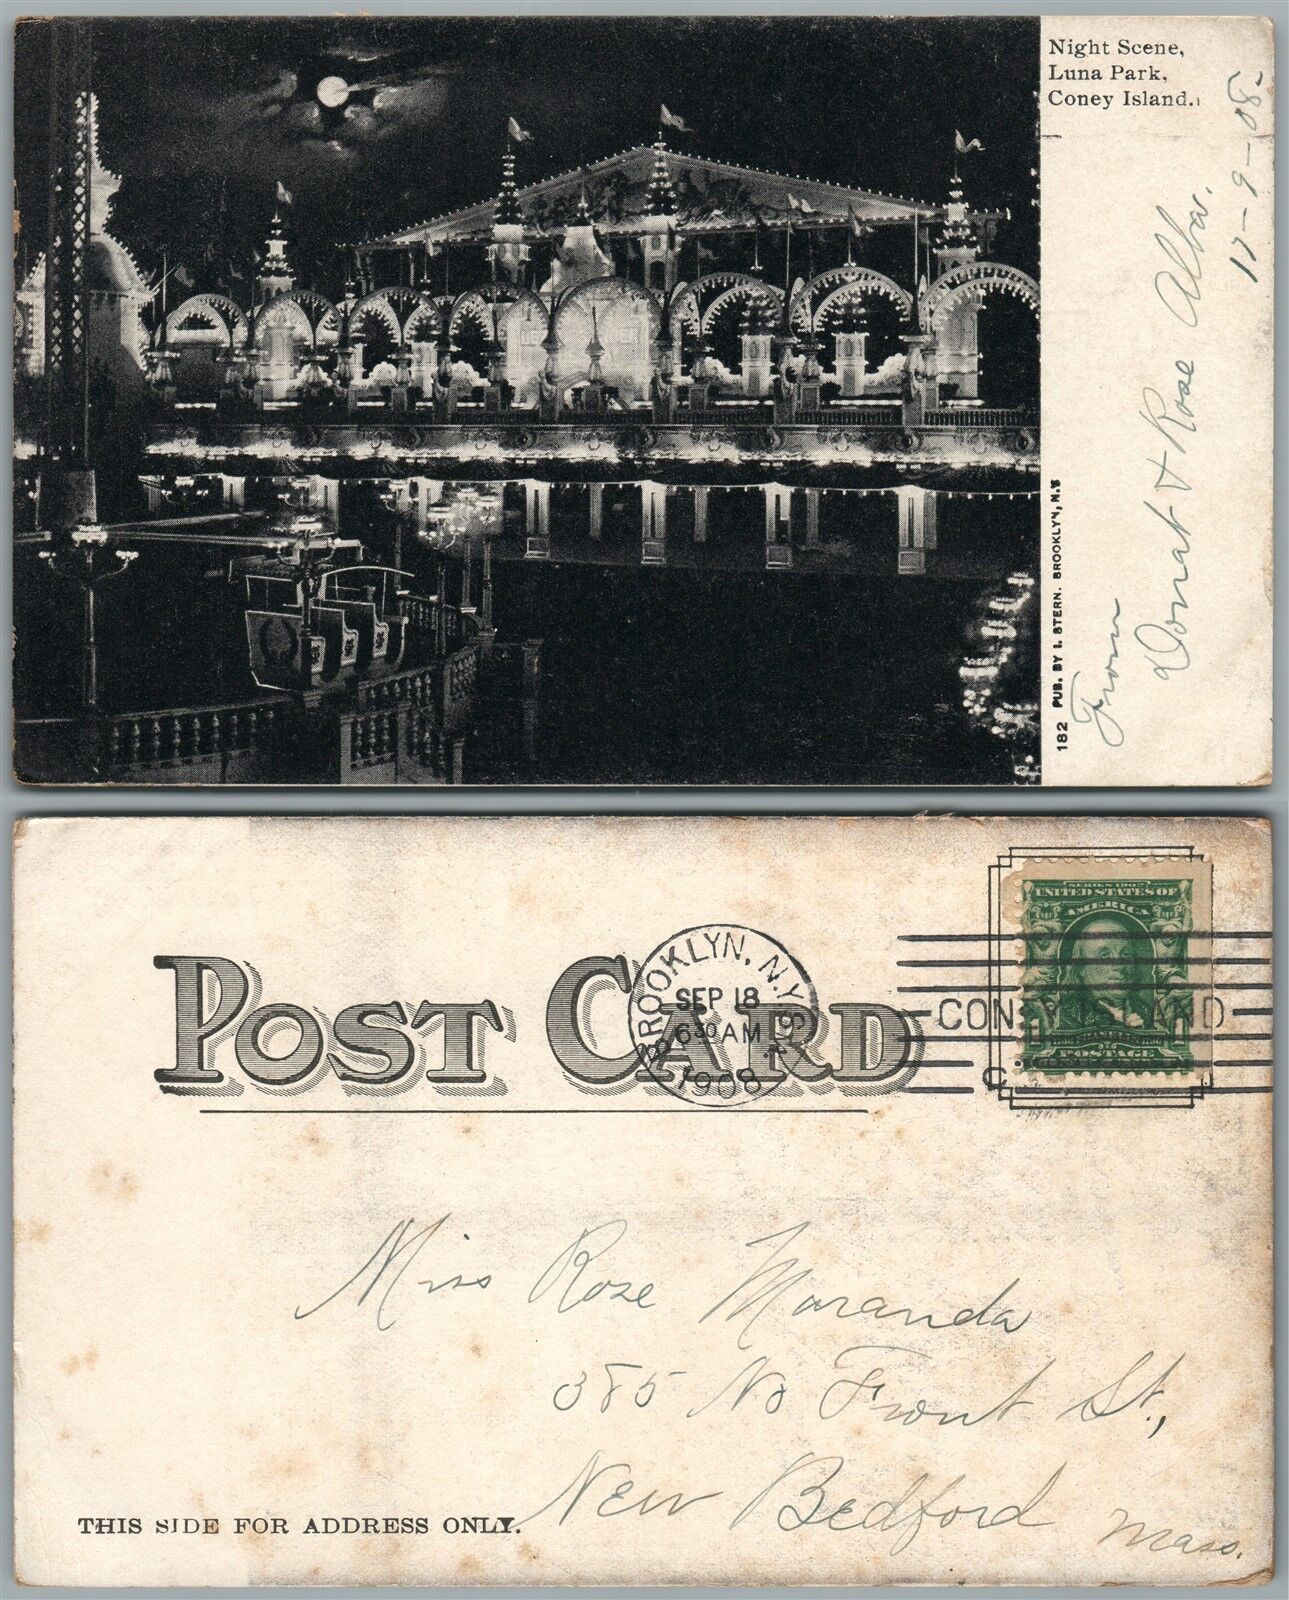 Night Scene,
Luna Park,
Coney Island.
182 PUB. BY I. STERN. BROOKLYN, N.Y
From
Donat & Rose Alba.
17-9-08-
POST CARD
BROOKLYN, N.Y.
SEP 18
6 30 AM
1908
CONEY ISLAND
SERIES 1902
UNITED STATES OF
AMERICA
POSTAGE
Miss Rose Maranda
385 No Front St.,
New Bedford
Mass.
THIS SIDE FOR ADDRESS ONLY.